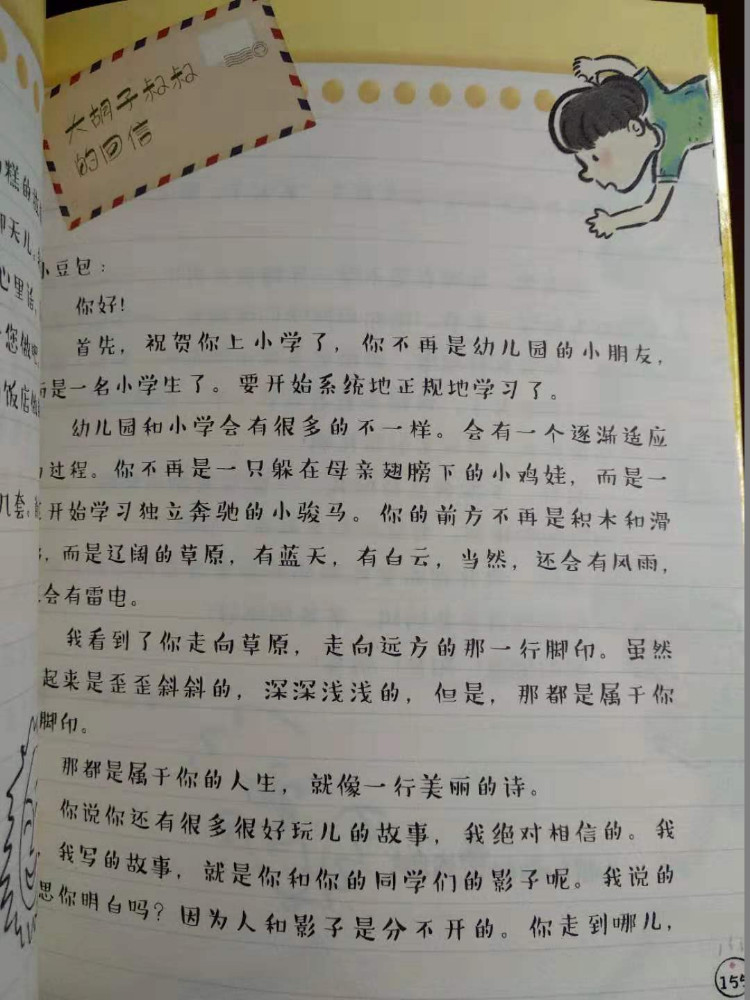 大胡子叔叔
的回信
小豆包：
你好！
首先，祝贺你上小学了，你不再是幼儿园的小朋友，
而是一名小学生了。要开始系统地正规地学习了。
幼儿园和小学会有很多的不一样。会有一个逐渐适应
过程。你不再是一只躲在母亲翅膀下的小鸡娃，而是一
开始学习独立奔驰的小骏马。你的前方不再是积木和滑
，而是辽阔的草原，有蓝天，有白云，当然，还会有风雨，
会有雷电。
我看到了你走向草原，走向远方的那一行脚印。虽然
起来是歪歪斜斜的，深深浅浅的，但是，那都是属于你
脚印。
那都是属于你的人生，就像一行美丽的诗。
你说你还有很多很好玩儿的故事，我绝对相信的。我
，我写的故事，就是你和你的同学们的影子呢。我说的
思你明白吗？因为人和影子是分不开的。你走到哪儿，
155
糕的
天儿
心里话，
您做吧
饭店
几套，